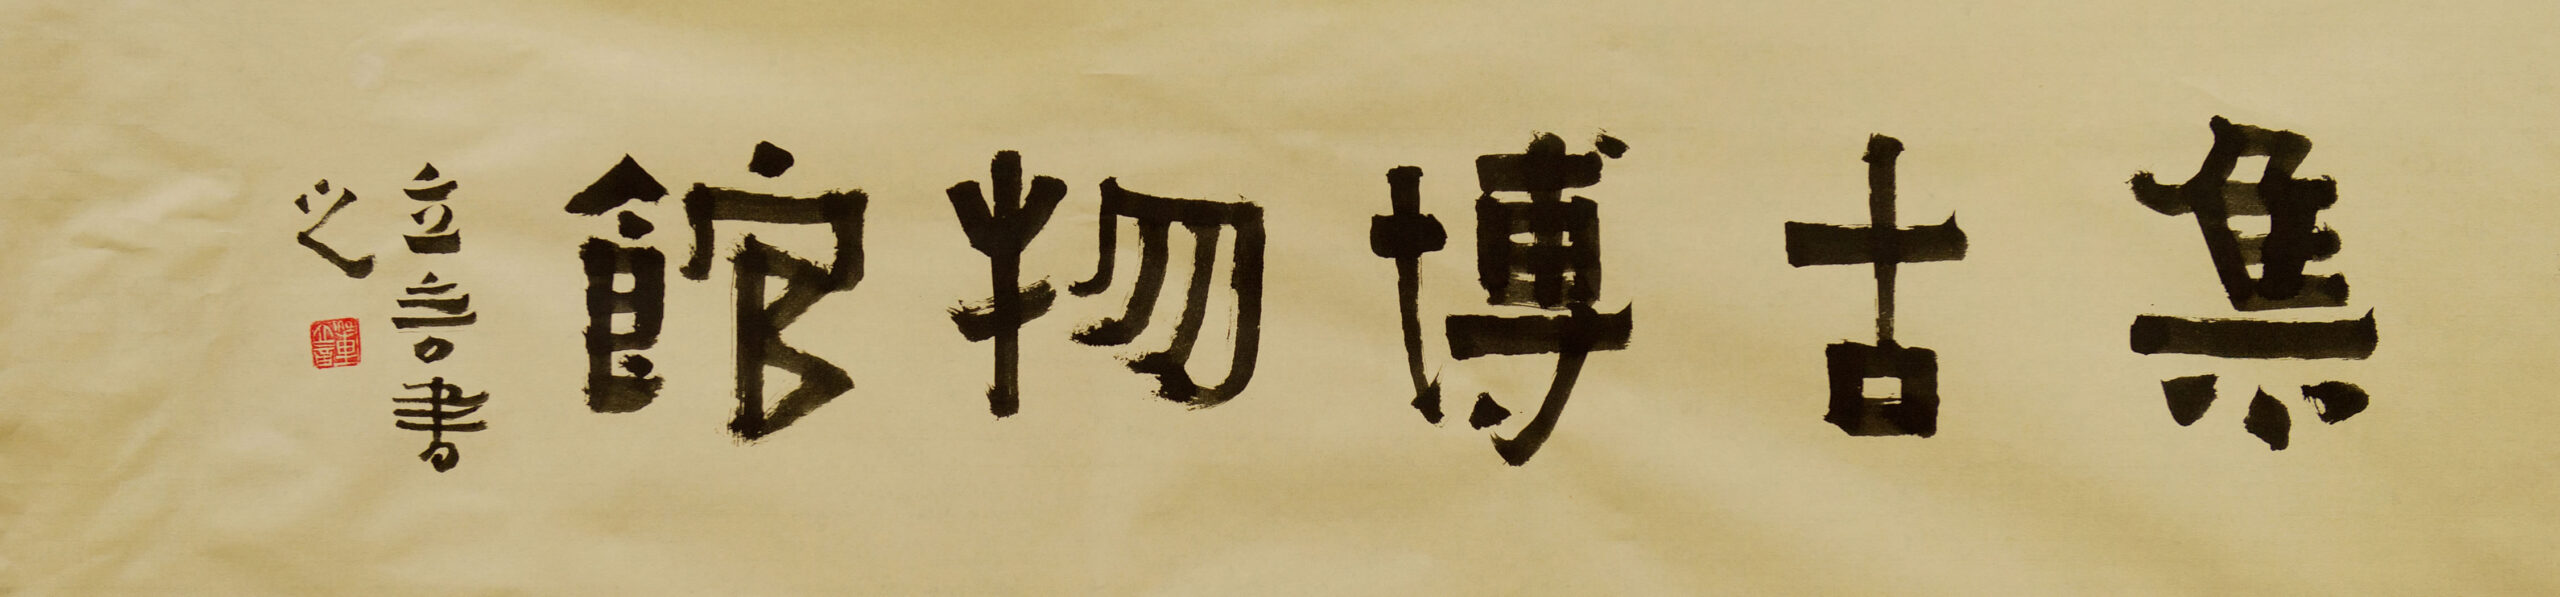 集古博物館
立言書
之